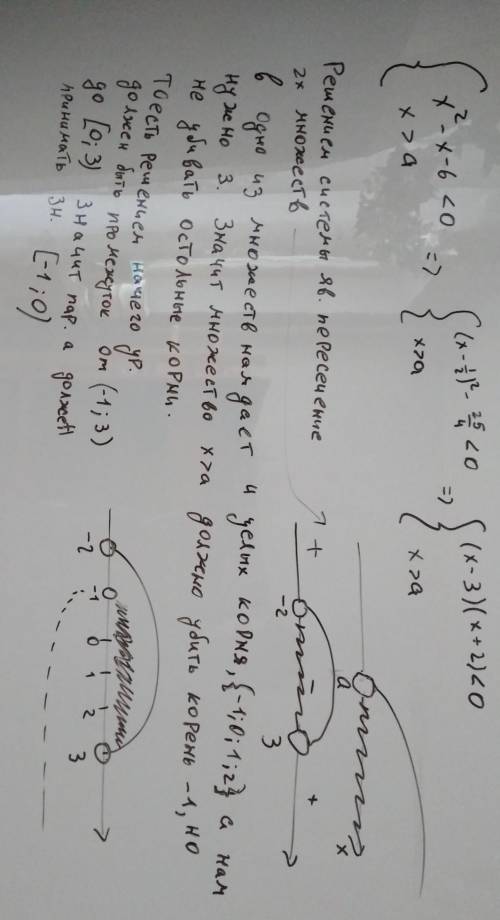 { x² - x - 6 < 0 => { (x - 1/2)² - 25/4 < 0 => { (x - 3)(x + 2) < 0
x > a x > a x > a
a x
Решением системы яв. пересечение
2х множеств
+ -2 - 3 + 
в одно из множеств нам дает 4 целых корня, {-1; 0; 1; 2} а нам
нужно 3. Значит множество x > a должно убить корень -1, но
не убивать остольные корни.
Тоесть Решением начего ур.
должен быть промежуток от (-1; 3)
до [0; 3) Значит пар. а должен
принимать зн. [-1; 0)
-2 -1 0 1 2 3